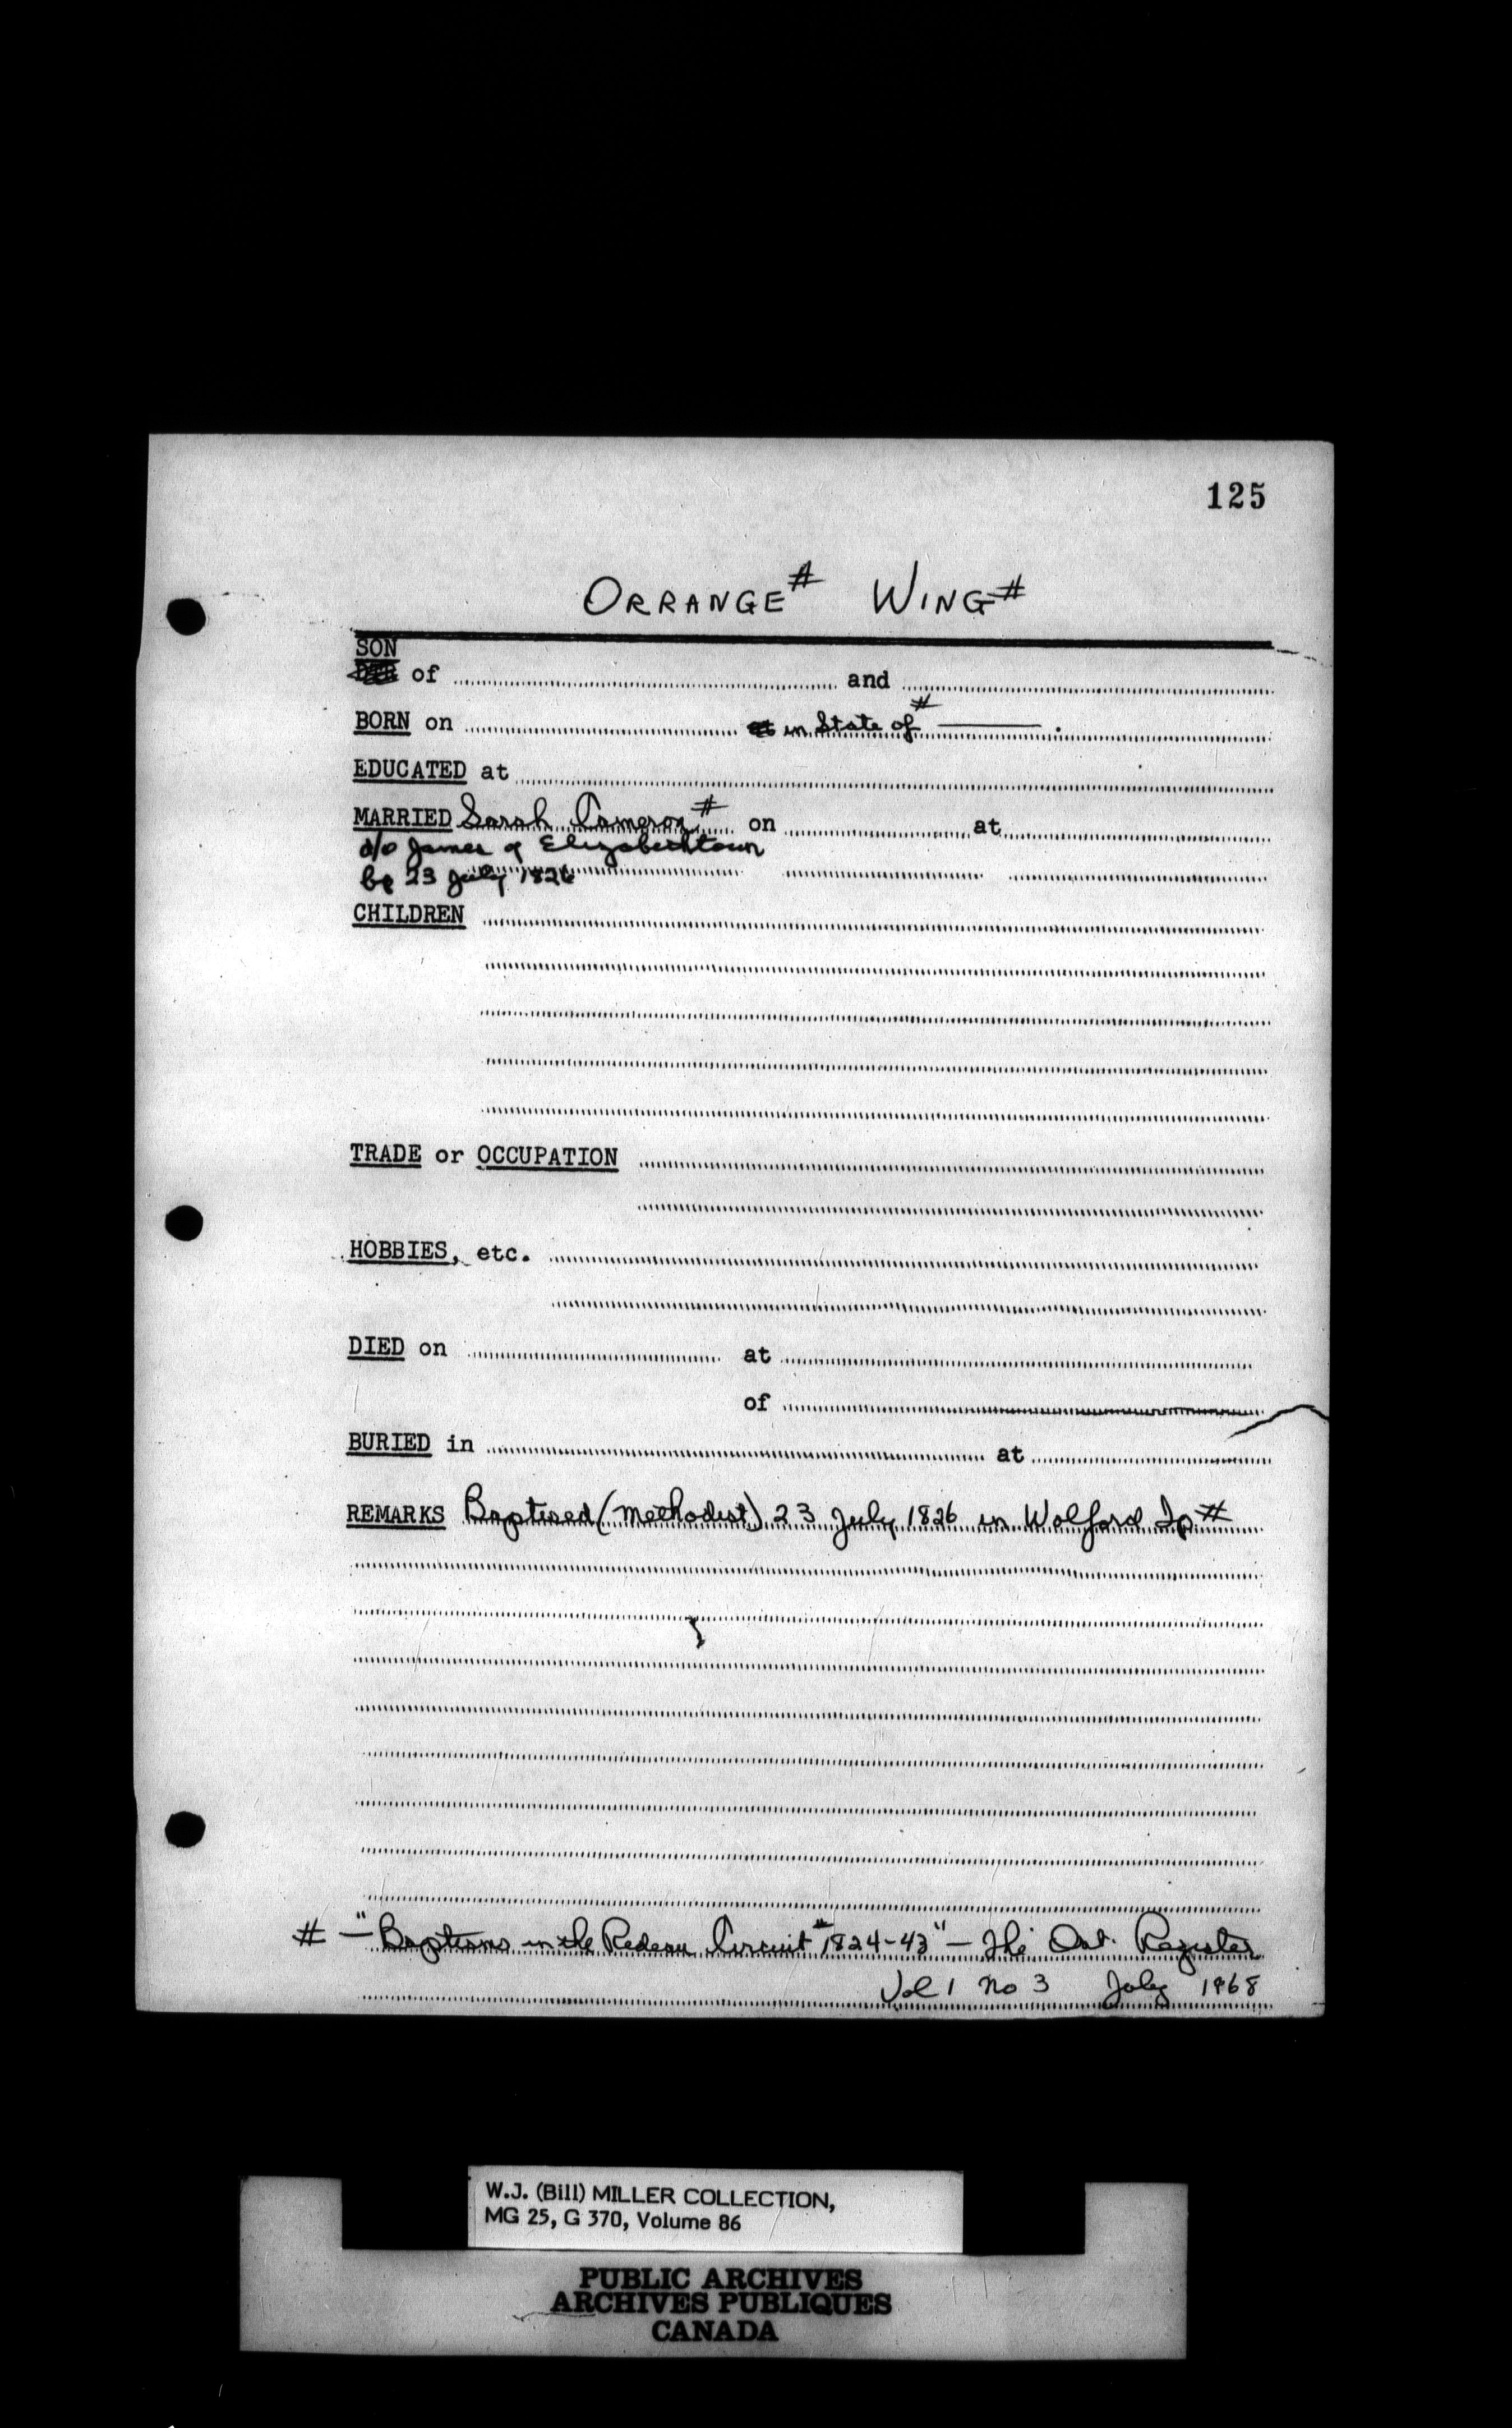 125
ORRANGE# WING#
SON
DTR of and
BORN on at in State of# .
EDUCATED at
MARRIED Sarah Cameron# on at
d/o James of Elizabethtown
by 23 July 1826
CHILDREN
TRADE or OCCUPATION
HOBBIES, etc.
DIED on at
of
BURIED in at
REMARKS Baptised (Methodist) 23 July 1826 in Wolford Tp.#
# - "Baptisms in the Redeau Circuit # 1824-43" - The Ont. Register
Vol 1 No 3 July 1968
W.J. (Bill) MILLER COLLECTION,
MG 25, G 370, Volume 86
PUBLIC ARCHIVES
ARCHIVES PUBLIQUES
CANADA